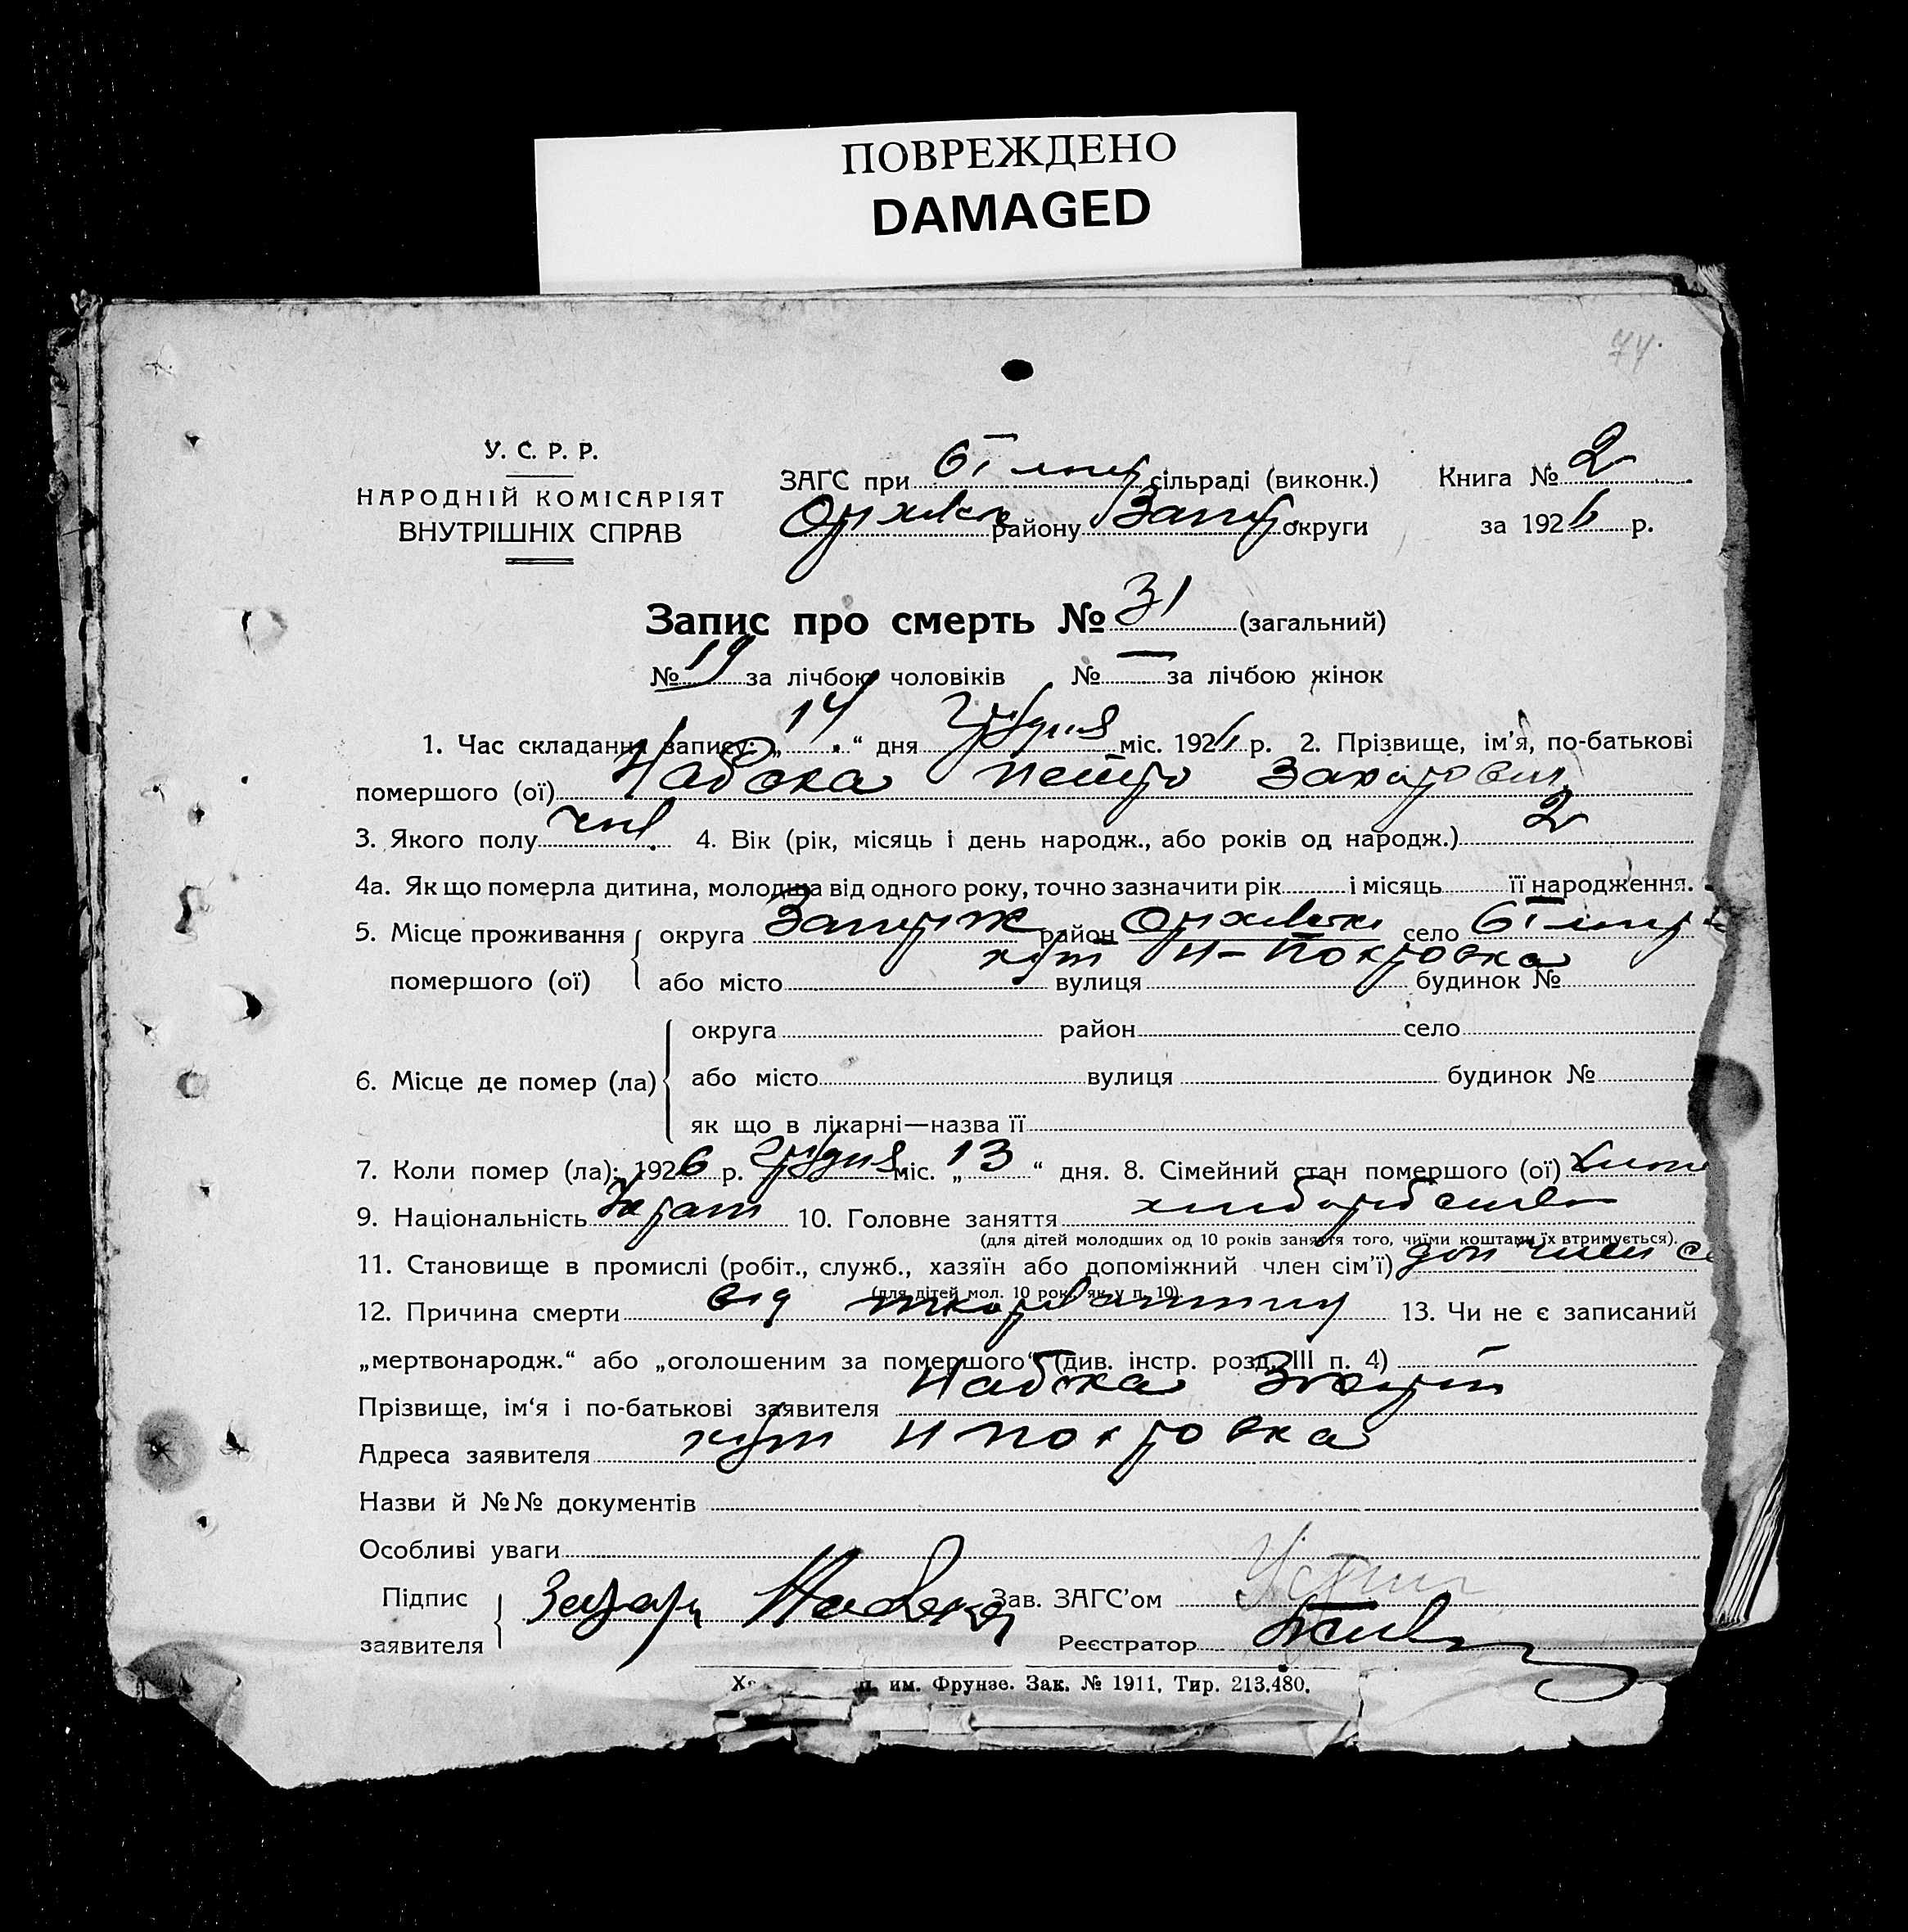 ПОВРЕЖДЕНО
DAMAGED
74.
У. С. Р. Р.
НАРОДНІЙ КОМІСАРІЯТ
ВНУТРІШНІХ СПРАВ
ЗАГС при сільраді (виконк.) Книга № 2
району Запор. округи за 1926 р.
Запис про смерть № 31 (загальний)
№ 19 за лічбою чоловіків № — за лічбою жінок
1. Час складання запису: „14“ дня грудня міс. 1926 р. 2. Прізвище, ім'я, по-батькові
помершого (ої) Набока Петро Захарович
3. Якого полу чол. 4. Вік (рік, місяць і день народж., або років од народж.) 2
4а. Як що померла дитина, молодша від одного року, точно зазначити рік і місяць її народження.
5. Місце проживання округа Запоріж район село
хут Н-Покровка
помершого (ої) або місто вулиця будинок №
округа район село
6. Місце де помер (ла) або місто вулиця будинок №
як що в лікарні—назва її
7. Коли помер (ла): 1926 р. грудня міс. „13“ дня. 8. Сімейний стан помершого (ої)
9. Національність 10. Головне заняття хліборобство
(для дітей молодших од 10 років заняття того, чиїми коштами їх втримується).
11. Становище в промислі (робіт., служб., хазяїн або допоміжний член сім'ї) доп член
(для дітей мол. 10 рок. як у п. 10).
12. Причина смерти від 13. Чи не є записаний
„мертвонародж.“ або „оголошеним за помершого“ (див. інстр. розд. III п. 4) —
Прізвище, ім'я і по-батькові заявителя Набока Захарій
Адреса заявителя хут Н Покровка
Назви й №№ документів
Особливі уваги
Підпис
заявителя Захарі Набока Зав. ЗАГС'ом
Реєстратор
им. Фрунзе. Зак. № 1911, Тир. 213.480.